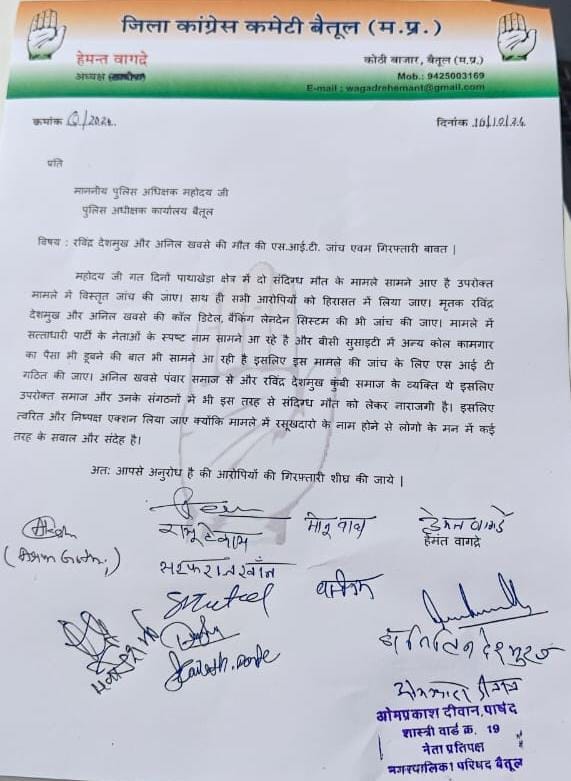 जिला कांग्रेस कमेटी बैतूल (म.प्र.)
हेमन्त वागद्रे
अध्यक्ष
कोठी बाजार, बैतूल (म.प्र.)
Mob.: 9425003169
E-mail : wagadrehemant@gmail.com
क्रमांक Q/2024.
दिनांक 16/10/24
प्रति
माननीय पुलिस अधिक्षक महोदय जी
पुलिस अधीक्षक कार्यालय बैतूल
विषय : रविंद्र देशमुख और अनिल खवसे की मौत की एस.आई.टी. जांच एवम गिरफ्तारी बावत |
महोदय जी गत दिनों पाथाखेड़ा क्षेत्र में दो संदिग्ध मौत के मामले सामने आए है उपरोक्त
मामले में विस्तृत जांच की जाए। साथ ही सभी आरोपियों को हिरासत में लिया जाए। मृतक रविंद्र
देशमुख और अनिल खवसे की कॉल डिटेल, बैंकिंग लेनदेन सिस्टम की भी जांच की जाए। मामले में
सत्ताधारी पार्टी के नेताओं के स्पष्ट नाम सामने आ रहे है और बीसी सुसाइटी में अन्य कोल कामगार
का पैसा भी डूबने की बात भी सामने आ रही है इसलिए इस मामले की जांच के लिए एस आई टी
गठित की जाए। अनिल खवसे पंवार समाज से और रविंद्र देशमुख कुंबी समाज के व्यक्ति थे इसलिए
उपरोक्त समाज और उनके संगठनों में भी इस तरह से संदिग्ध मौत को लेकर नाराजगी है। इसलिए
त्वरित और निष्पक्ष एक्शन लिया जाए क्योंकि मामले में रसूखदारो के नाम होने से लोगो के मन में कई
तरह के सवाल और संदेह है।
अतः आपसे अनुरोध है की आरोपियों की गिरफ्तारी शीघ्र की जाये |
रामू टेकाम
हेमंत वागद्रे
हेमंत वागद्रे
सरफराज खान
डॉ नितिन देशमुख
ओमप्रकाश दीवान, पार्षद
शास्त्री वार्ड क्र. 19
नेता प्रतिपक्ष
नगरपालिका परिषद बैतूल